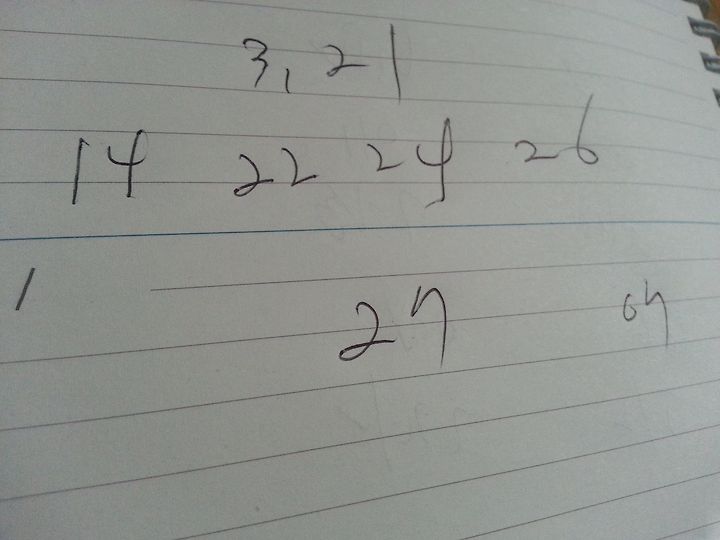 3, 21
14 22 24 26
1 27 07